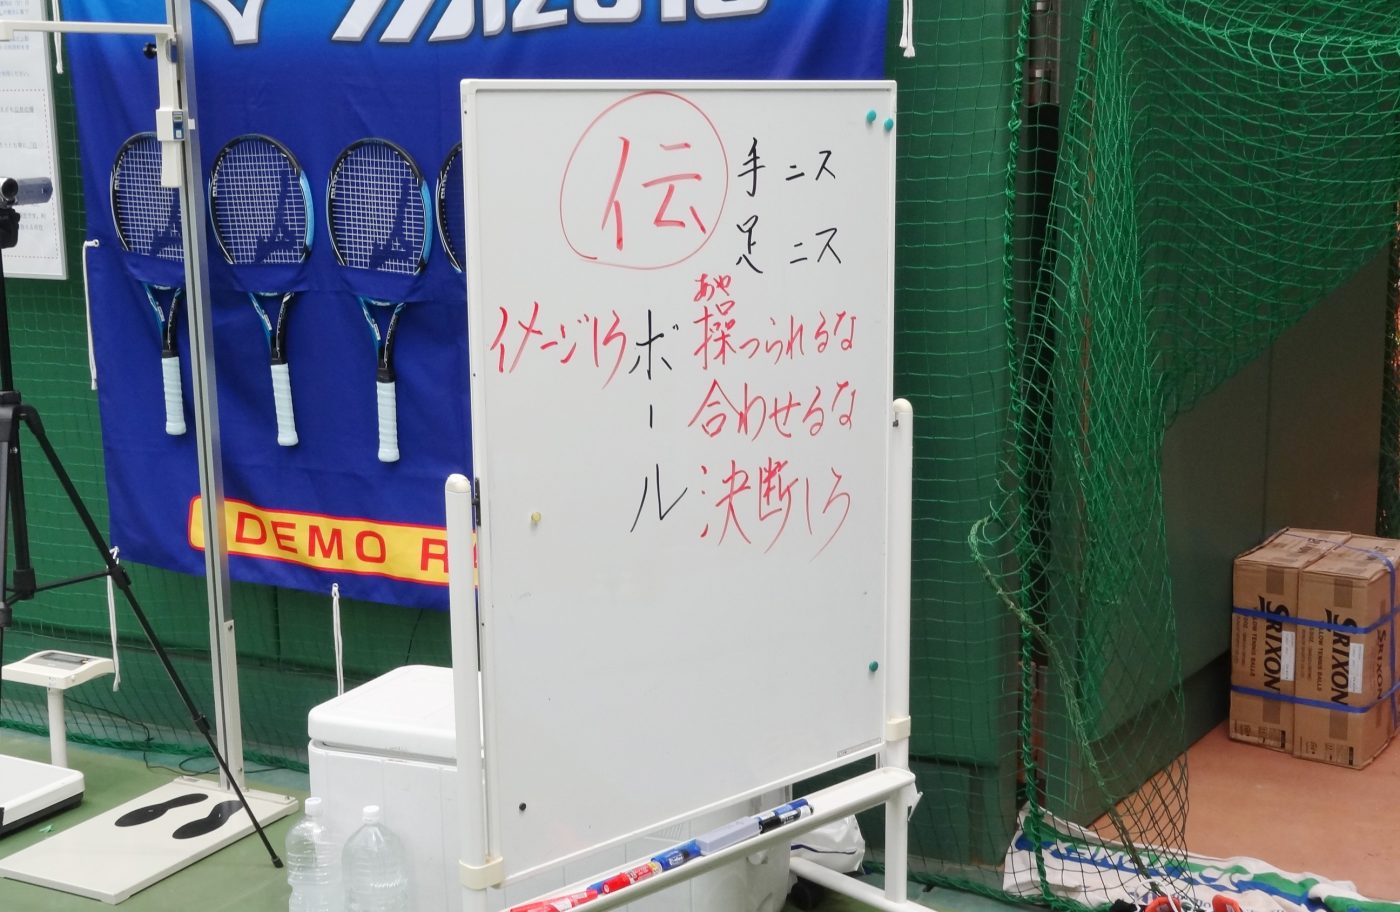 MIZUNO
伝
手ニス
足ニス
イメージしろ
ボール
あや
操つられるな
合わせるな
決断しろ
DEMO R
SRIXON
SRIXON
SRIXON
TENNIS BALLS